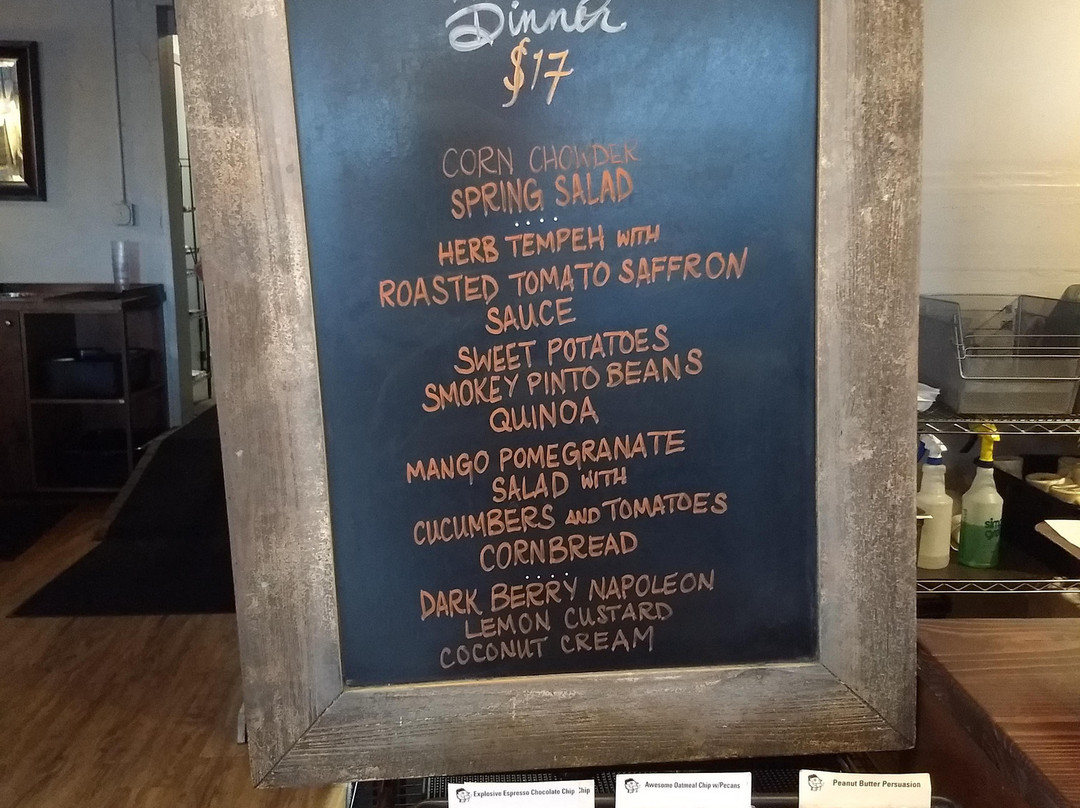 Dinner
$17
CORN CHOWDER
SPRING SALAD
....
HERB TEMPEH WITH
ROASTED TOMATO SAFFRON
SAUCE
SWEET POTATOES
SMOKEY PINTO BEANS
QUINOA
MANGO POMEGRANATE
SALAD WITH
CUCUMBERS AND TOMATOES
CORNBREAD
....
DARK BERRY NAPOLEON
LEMON CUSTARD
COCONUT CREAM
Explosive Espresso Chocolate Chip Chip
Awesome Oatmeal Chip w/Pecans
Peanut Butter Persuasion